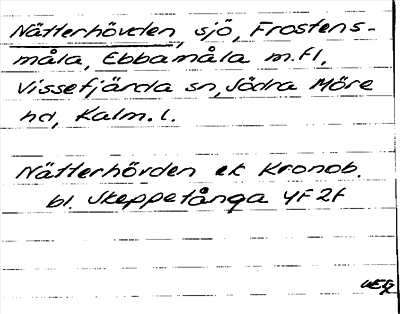 Nätterhövden, sjö, Frostens-
måla, Ebbamåla m.fl,
Vissefjärda sn, Södra Möre
hd, Kalm. l.
Nätterhövden ek Kronob.
bl. Skeppetånga 4F 2f